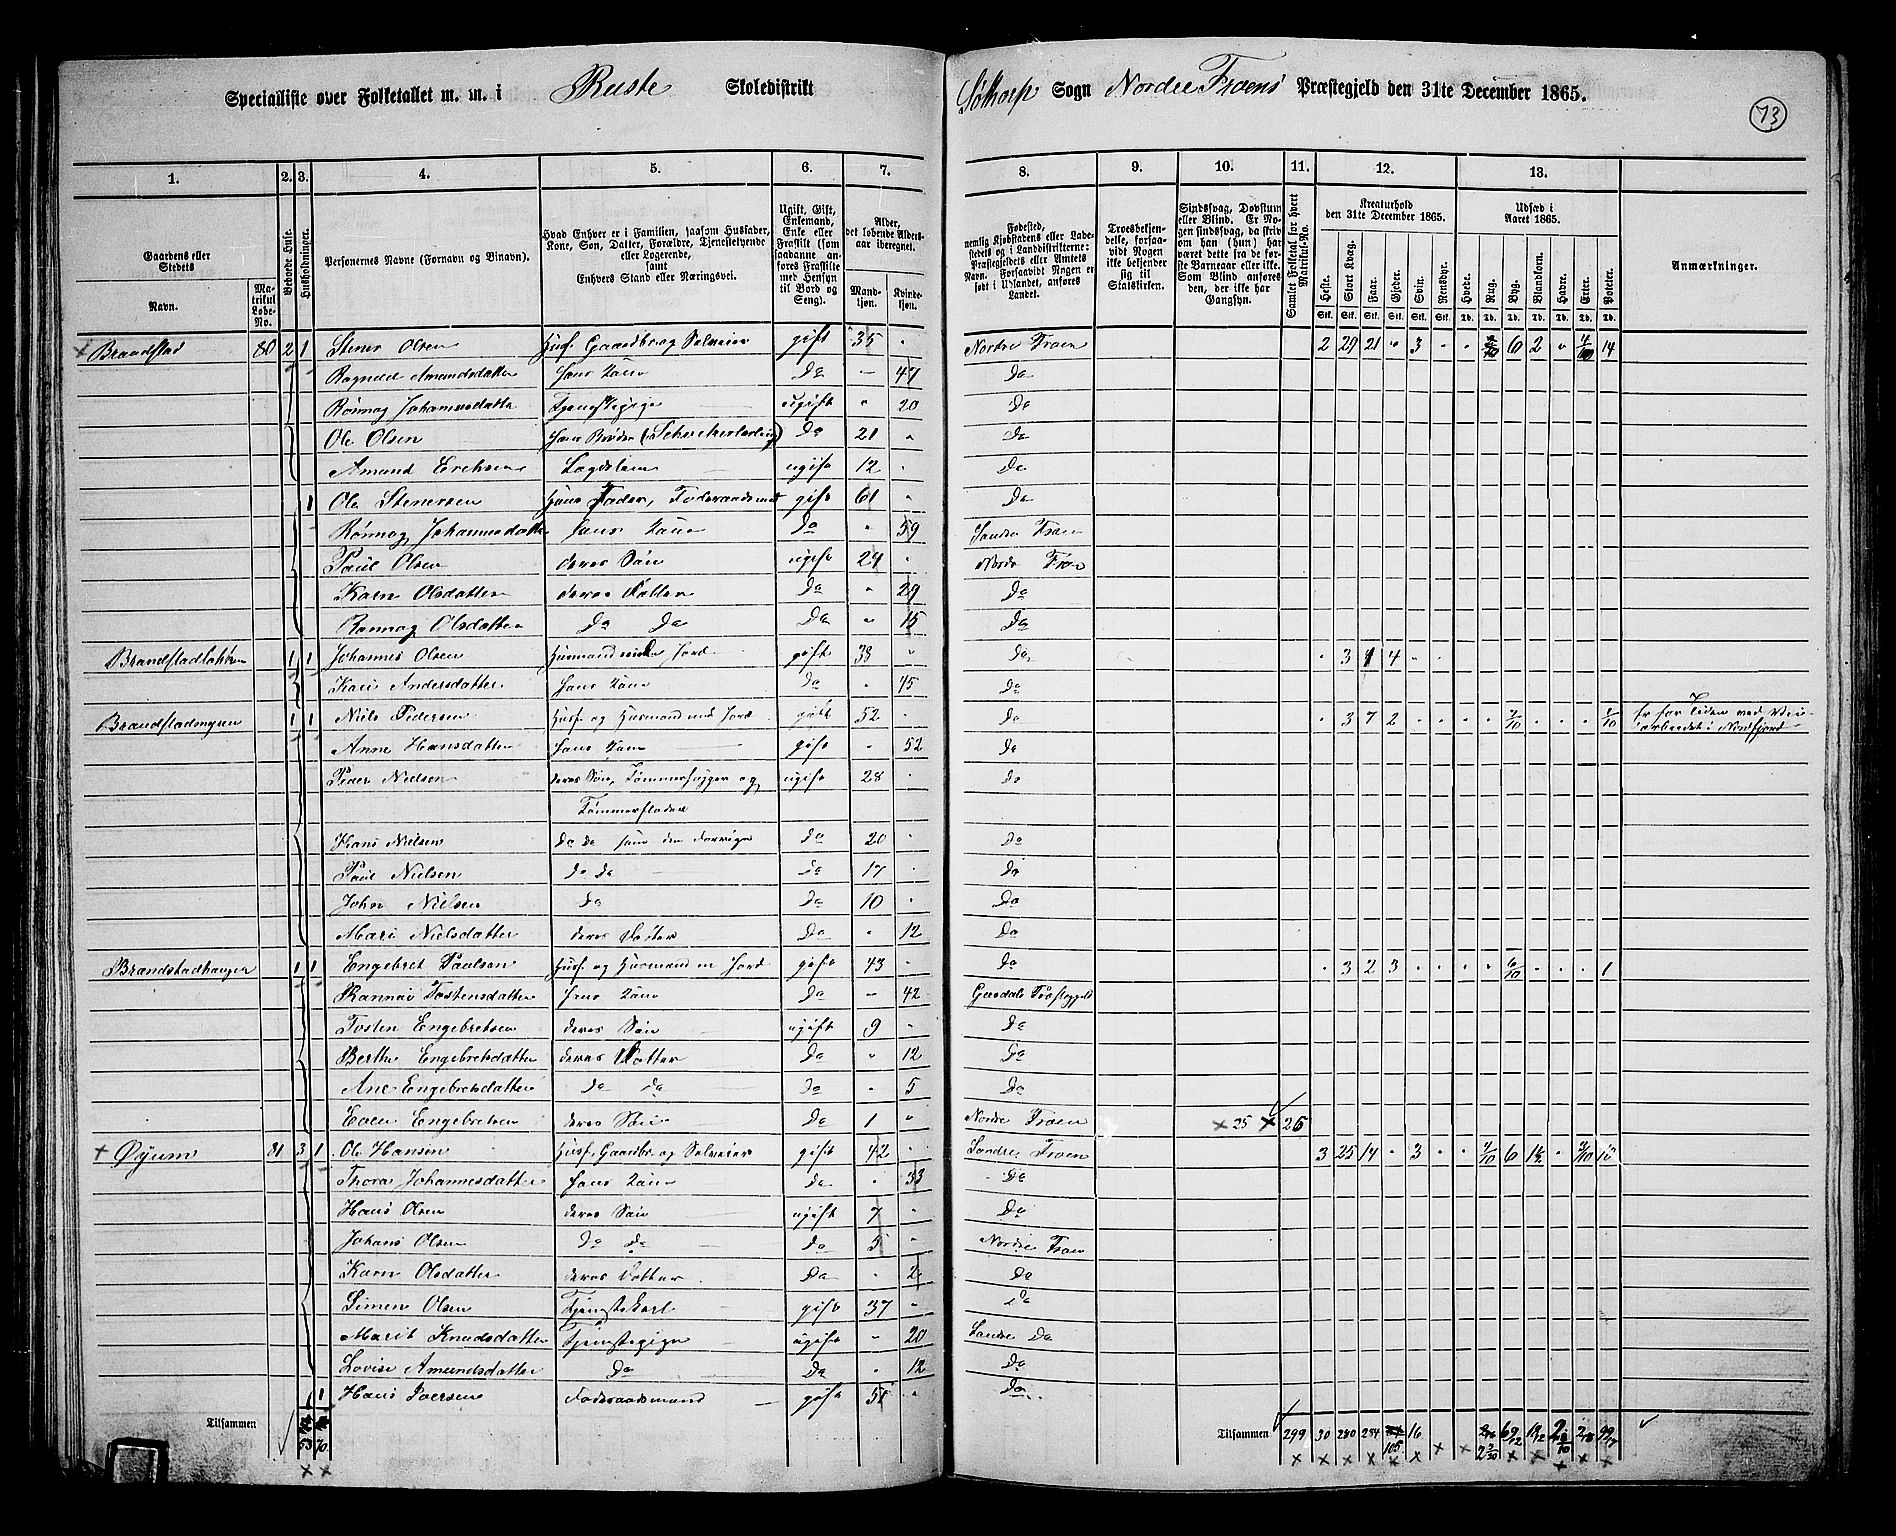 Specialliste over Folketallet m. m. i Ruste Skoledistrikt Sødorp Sogn Nordre Froens Præstegjeld den 31te December 1865.
73
1. 2. 3. 4. 5. 6. 7. 8. 9. 10. 11. 12. 13.
Gaardens eller Stedets
Navn. Matrikul Løbe-No.
Beboede Huse.
Husholdninger.
Personernes Navne (Fornavn og Binavn).
Hvad Enhver er i Familien, saasom Husfader, Kone, Søn, Datter, Forældre, Tjenestetyende eller Logerende, samt Enhvers Stand eller Næringsvei.
Ugift, Gift, Enkemand, Enke eller Fraskilt (som saadanne anføres Fraskilte med Hensyn til Bord og Seng).
Alder, det løbende Aldersaar iberegnet.
Mandkjøn. Kvindekjøn.
Fødested, nemlig Kjøbstadens eller Ladestedets og i Landdistrikterne: Præstegjeldets eller Amtets Navn. Forsaavidt Nogen er født i Udlandet, anføres Landet.
Troesbekjendelse, forsaavidt Nogen ikke bekjender sig til Statskirken.
Sindssvag, Døvstum eller Blind. Er Nogen sindssvag, da skrives om han (hun) har været det fra de første Barneaar eller ikke. Som Blind anføres den, der ikke har Gangsyn.
Samlet Folketal for hvert Matrikul-No.
Kreaturhold den 31te December 1865.
Heste. Stort Kvæg. Faar. Gjeder. Svin. Rensdyr.
Udsæd i Aaret 1865.
Hvede. Rug. Byg. Blandkorn. Havre. Erter. Poteter.
Anmærkninger.
Brandstad 80 2 1 Stener Olsen Husf. Gaardbr. og Selveier gift 35 Nordre Froen 2 29 21 3 6 2 14
Ragnild Amundsdatter hans Kone Do 47 Do
Rønnog Johannesdatter Tjenestepige ugift 20 Do
Ole Olsen hans Broder Do 21 Do
Amund Erichsen Lægdslem ugift 12 Do
1 Ole Stenersen Hans Fader, Føderaadsmand gift 61 Do
Rønnog Johannesdatter hans Kone Do 59 Søndre Froen
Paul Olsen deres Søn ugift 24 Nordre Froen
Karn Olsdatter deres Datter Do 29 Do
Rønnog Olsdatter Do Do Do 15 Do
Brandstadløkken 1 1 Johannes Olsen Husmand med Jord gift 38 Do 3 4
Kari Andersdatter hans Kone Do 45 Do
Brandstadengen 1 1 Niels Pedersen Husf. og Husmand med Jord gift 52 Do 3 7 2 Er for Tiden ved Vei-
arbeidet i Nordfjord
Anne Hansdatter hans Kone gift 52 Do
Peder Nielsen deres Søn, Tømmerhugger og ugift 28 Do
Tømmerfløder
Hans Nielsen Do Do som den Forrige Do 20 Do
Paul Nielsen Do Do Do 17 Do
John Nielsen Do Do 10 Do
Mari Nielsdatter deres Datter Do 12 Do
Brandstadhaugen 1 1 Engebret Paulsen Husf. og Husmand m Jord gift 43 Do 3 2 3 1
Rannei Tostensdatter hans Kone Do 42 Gausdals Præstegjeld
Tosten Engebretsen deres Søn ugift 9 Do
Berthe Engebretsdatter deres Datter Do 12 Do
Ane Engebretsdatter Do Do Do 5 Do
Even Engebretsen deres Søn Do 1 Nordre Froen × 25 × 26
Øyum 81 3 1 Ole Hansen Husf. Gaardbr. og Selveier gift 42 Søndre Froen 3 25 14 3 6
Thora Johannesdatter hans Kone Do 33 Do
Hans Olsen deres Søn ugift 7 Do
Johans Olsen Do Do Do 5 Nordre Froen
Karn Olsdatter deres Datter Do 2 Do
Simen Olsen Tjenestekarl gift 37 Do
Marit Knudsdatter Tjenestepige ugift 20 Søndre Do
Lovise Amundsdatter Do Do 12 Do
1 Hans Iversen Føderaadsmand gift Do
Tilsammen 53 70
Tilsammen 299 30 280 234 105 16